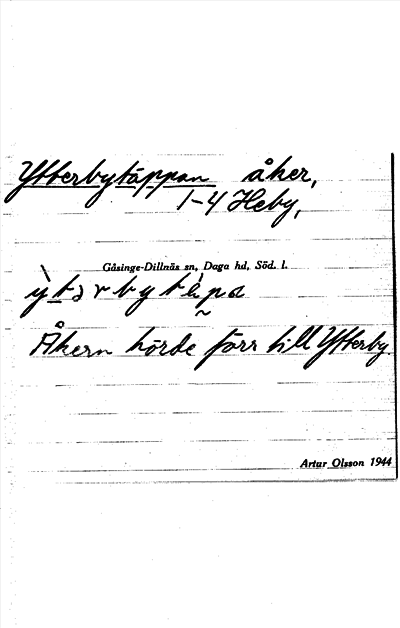 Ytterbytäppan åker,
1-4 Heby,
Gåsinge-Dillnäs sn, Daga hd, Söd. l.
Åkern hörde förr till Ytterby
Artur Olsson 1944